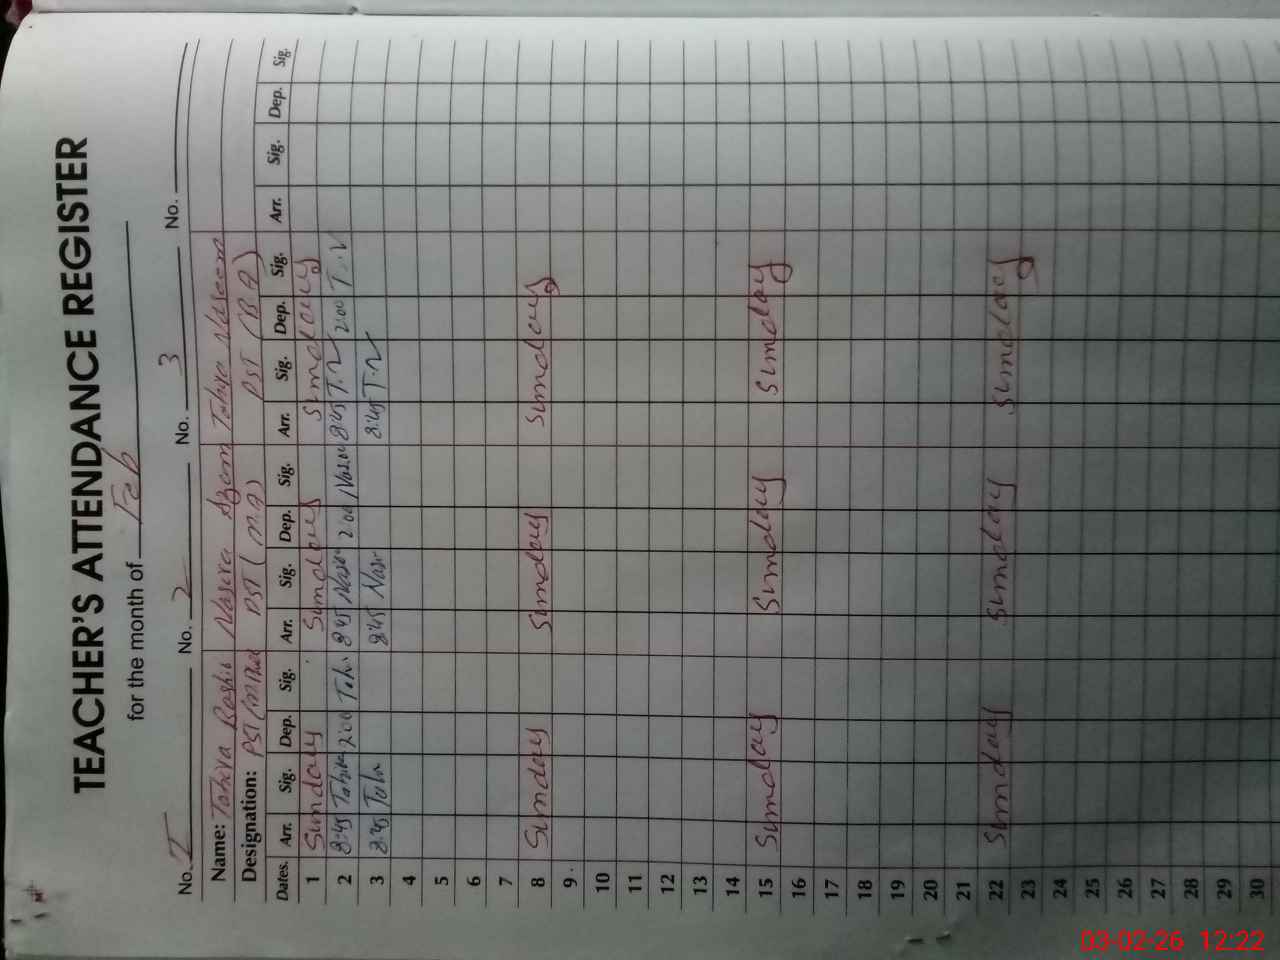 TEACHER'S ATTENDANCE REGISTER
for the month of Feb
No. I No. 2 No. 3 No.
Name: Tahira Bashir Nasira Azam Tahira Naseem
Designation: PST (M.Phil PST (M.A) PST (B.A)
Dates. Arr. Sig. Dep. Sig. Arr. Sig. Dep. Sig. Arr. Sig. Dep. Sig. Arr. Sig. Dep. Sig.
1 Sunday Sunday Sunday
2 8:45 Tahira 2:00 8:45 2:00 8:45 T.N 2:00 T.N
3 8:45 8:45 8:45 T.N
4
5
6
7
8 Sunday Sunday Sunday
9
10
11
12
13
14
15 Sunday Sunday Sunday
16
17
18
19
20
21
22 Sunday Sunday Sunday
23
24
25
26
27
28
29
30
03-02-26 12:22